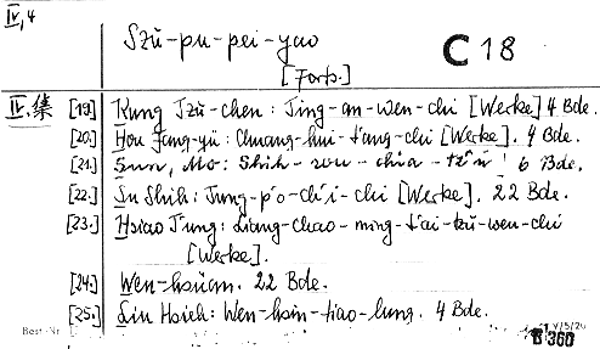 IV,4
Szŭ-pu-pei-yao
C 18
[Forts.]
IV. 集 [19.] Kung Tzŭ-chen: Ting-an-wen-chi [Werke] 4 Bde.
[20.] Hou Fang-yü: Chuang-hui-t'ang-chi [Werke]. 4 Bde.
[21.] Sun, Mo: Shih-sou-chia-tz'ŭ! 6 Bde.
[22.] Su Shih: Tung-p'o-ch'i-chi [Werke]. 22 Bde.
[23.] Hsiao T'ung: Liang-chao-ming-t'ai-tzŭ-wen-chi
[Werke].
[24.] Wen-hsüan. 22 Bde.
[25.] Liu Hsieh: Wen-hsin-tiao-lung. 4 Bde.
Best-Nr
B 360